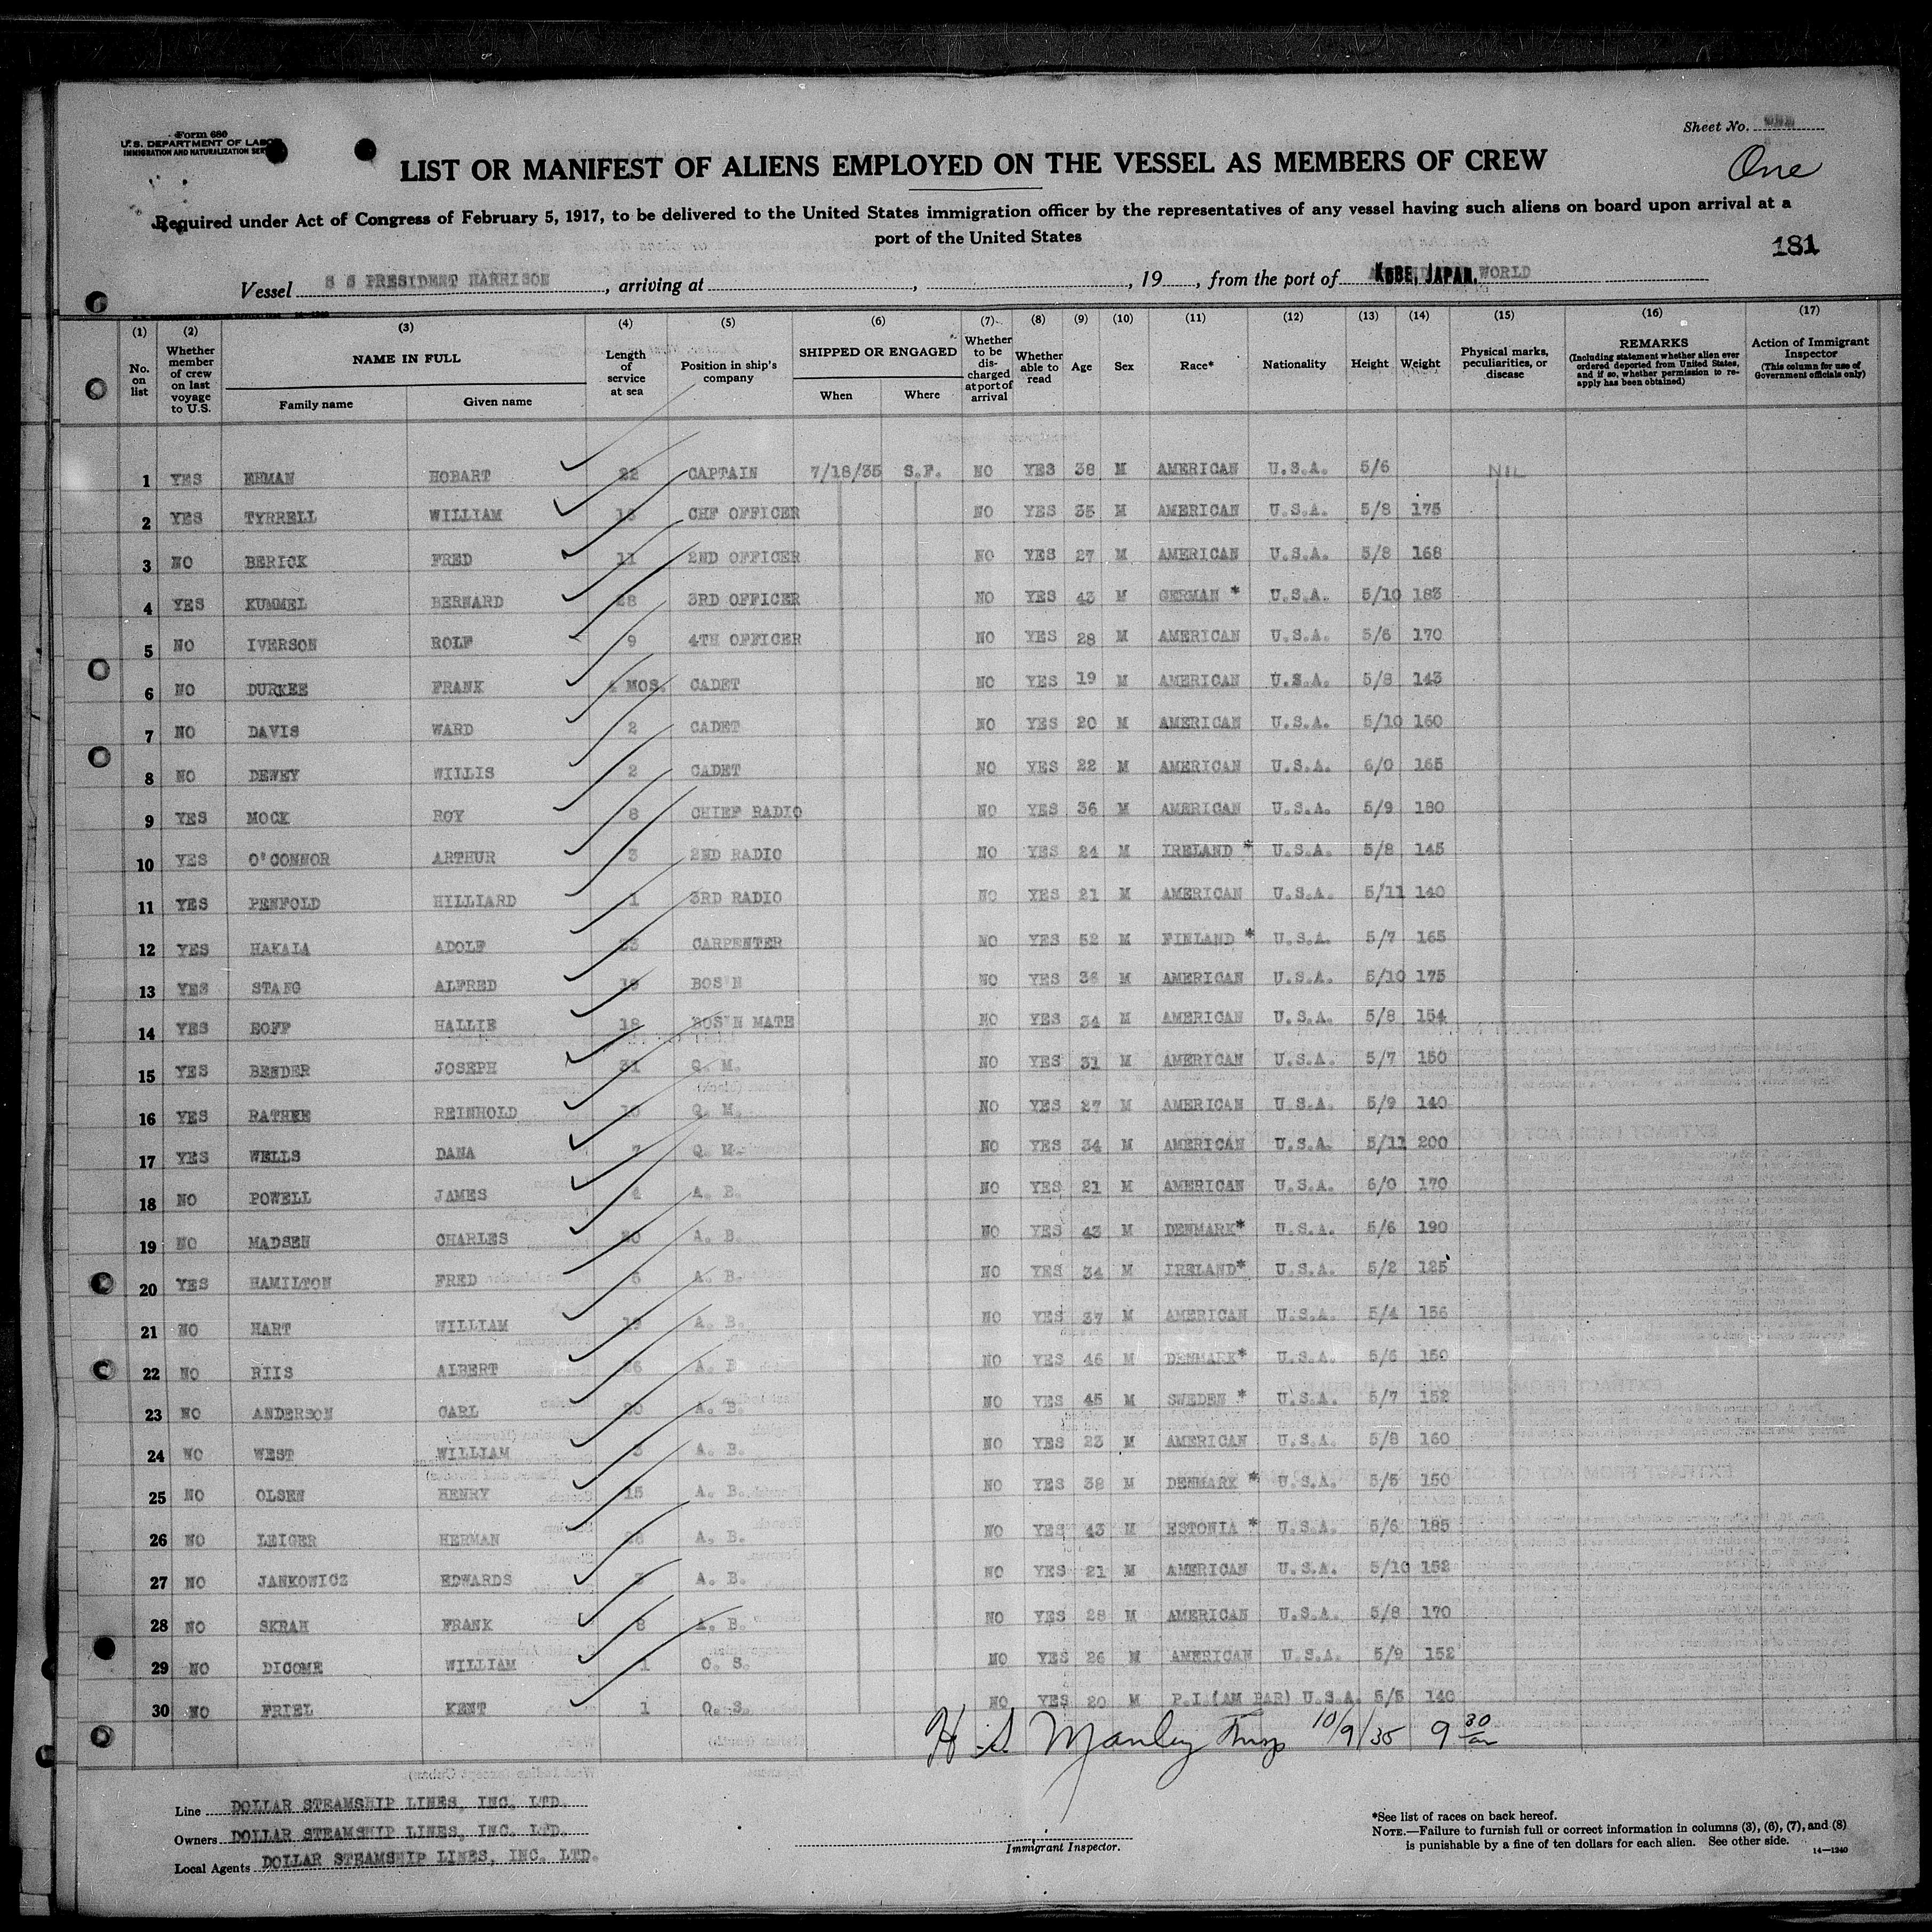 Form 680
U. S. DEPARTMENT OF LABOR
IMMIGRATION AND NATURALIZATION SERVICE
Sheet No.
One
LIST OR MANIFEST OF ALIENS EMPLOYED ON THE VESSEL AS MEMBERS OF CREW
Required under Act of Congress of February 5, 1917, to be delivered to the United States immigration officer by the representatives of any vessel having such aliens on board upon arrival at a
port of the United States
181
Vessel S S PRESIDENT HARRISON, arriving at , , 19 , from the port of KOBE, JAPAN. WORLD
(1) (2) (3) (4) (5) (6) (7) (8) (9) (10) (11) (12) (13) (14) (15) (16) (17)
No. on list | Whether member of crew on last voyage to U.S. | NAME IN FULL | Family name | Given name | Length of service at sea | Position in ship's company | SHIPPED OR ENGAGED | When | Where | Whether to be discharged at port of arrival | Whether able to read | Age | Sex | Race* | Nationality | Height | Weight | Physical marks, peculiarities, or disease | REMARKS (Including statement whether alien ever ordered deported from United States, and if so, whether permission to reapply has been obtained) | Action of Immigrant Inspector (This column for use of Government officials only)
1 YES EHMAN HOBART 22 CAPTAIN 7/18/35 S.F. NO YES 38 M AMERICAN U.S.A. 5/6 NIL
2 YES TYRRELL WILLIAM CHF OFFICER NO YES 35 M AMERICAN U.S.A. 5/8 175
3 NO BERICK FRED 11 2ND OFFICER NO YES 27 M AMERICAN U.S.A. 5/8 168
4 YES KUMMEL BERNARD 28 3RD OFFICER NO YES 43 M GERMAN * U.S.A. 5/10 183
5 NO IVERSON ROLF 9 4TH OFFICER NO YES 28 M AMERICAN U.S.A. 5/6 170
6 NO DURKEE FRANK 4 MOS. CADET NO YES 19 M AMERICAN U.S.A. 5/8 143
7 NO DAVIS WARD 2 CADET NO YES 20 M AMERICAN U.S.A. 5/10 160
8 NO DEWEY WILLIS 2 CADET NO YES 22 M AMERICAN U.S.A. 6/0 165
9 YES MOCK ROY 8 CHIEF RADIO NO YES 36 M AMERICAN U.S.A. 5/9 180
10 YES O'CONNOR ARTHUR 3 2ND RADIO NO YES 24 M IRELAND * U.S.A. 5/8 145
11 YES PENFOLD HILLIARD 1 3RD RADIO NO YES 21 M AMERICAN U.S.A. 5/11 140
12 YES HAKALA ADOLF 23 CARPENTER NO YES 52 M FINLAND * U.S.A. 5/7 165
13 YES STANG ALFRED BOS'N NO YES 36 M AMERICAN U.S.A. 5/10 175
14 YES EOFF HALLIE 18 BOS'N MATE NO YES 34 M AMERICAN U.S.A. 5/8 154
15 YES BENDER JOSEPH Q. M. NO YES 31 M AMERICAN U.S.A. 5/7 150
16 YES RATHKE REINHOLD 10 Q. M. NO YES 27 M AMERICAN U.S.A. 5/9 140
17 YES WELLS DANA 7 Q. M. NO YES 34 M AMERICAN U.S.A. 5/11 200
18 NO POWELL JAMES 4 A. B. NO YES 21 M AMERICAN U.S.A. 6/0 170
19 NO MADSEN CHARLES A. B. NO YES 43 M DENMARK* U.S.A. 5/6 190
20 YES HAMILTON FRED A. B. NO YES 34 M IRELAND* U.S.A. 5/2 125
21 NO HART WILLIAM 19 A. B. NO YES 37 M AMERICAN U.S.A. 5/4 156
22 NO RIIS ALBERT A. B NO YES 46 M DENMARK* U.S.A. 5/6 150
23 NO ANDERSON CARL A. B. NO YES 45 M SWEDEN * U.S.A. 5/7 152
24 NO WEST WILLIAM 3 A. B. NO YES 23 M AMERICAN U.S.A. 5/8 160
25 NO OLSEN HENRY 15 A. B. NO YES 38 M DENMARK * U.S.A. 5/5 150
26 NO LEIGER HERMAN A. B. NO YES 43 M ESTONIA * U.S.A. 5/6 185
27 NO JANKOWICZ EDWARDS 3 A. B. NO YES 21 M AMERICAN U.S.A. 5/10 152
28 NO SKRAH FRANK 8 A. B. NO YES 28 M AMERICAN U.S.A. 5/8 170
29 NO DICOME WILLIAM 1 O. S. NO YES 26 M AMERICAN U.S.A. 5/9 152
30 NO FRIEL KENT 1 O. S. NO YES 20 M P.I(AM PAR) U.S.A. 5/5 140
H S Manley Insp 10/9/35 9 30 am
Line DOLLAR STEAMSHIP LINES, INC. LTD.
Owners DOLLAR STEAMSHIP LINES, INC. LTD.
Local Agents DOLLAR STEAMSHIP LINES, INC. LTD.
Immigrant Inspector.
*See list of races on back hereof.
NOTE.—Failure to furnish full or correct information in columns (3), (6), (7), and (8)
is punishable by a fine of ten dollars for each alien. See other side.
14—1240